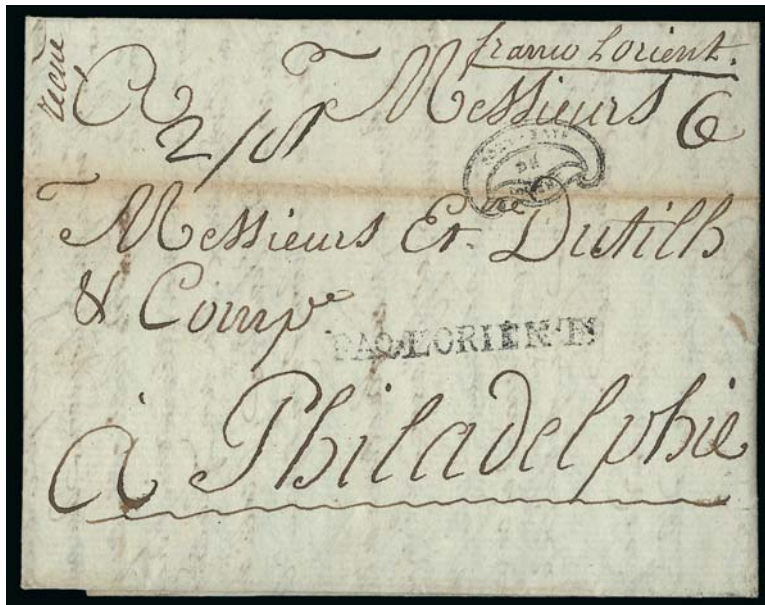 franco Lorient.
A Messieurs 6
2/
Messieurs Et.ne Dutilh
& Comp.e
PAQ.L'ORIENT
à Philadelphie